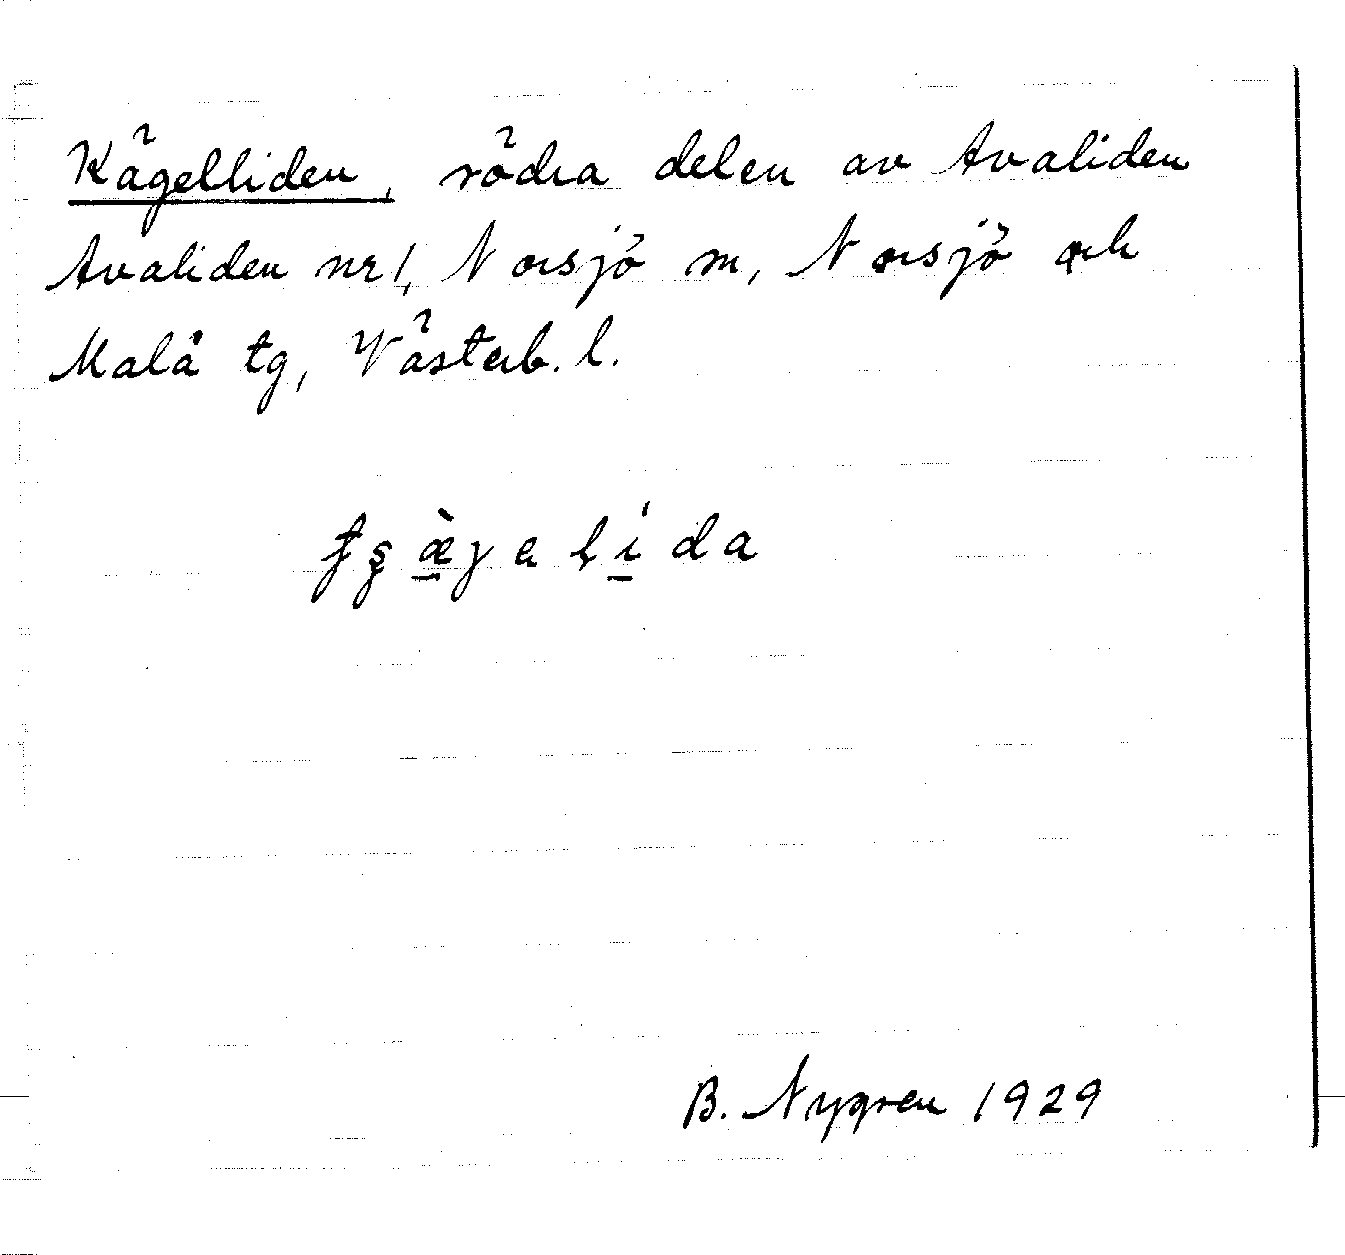 Kägelliden, södra delen av Avaliden
Avaliden nr 1, Norsjö sn, Norsjö och
Malå tg, Västerb. l.
B. Nygren 1929